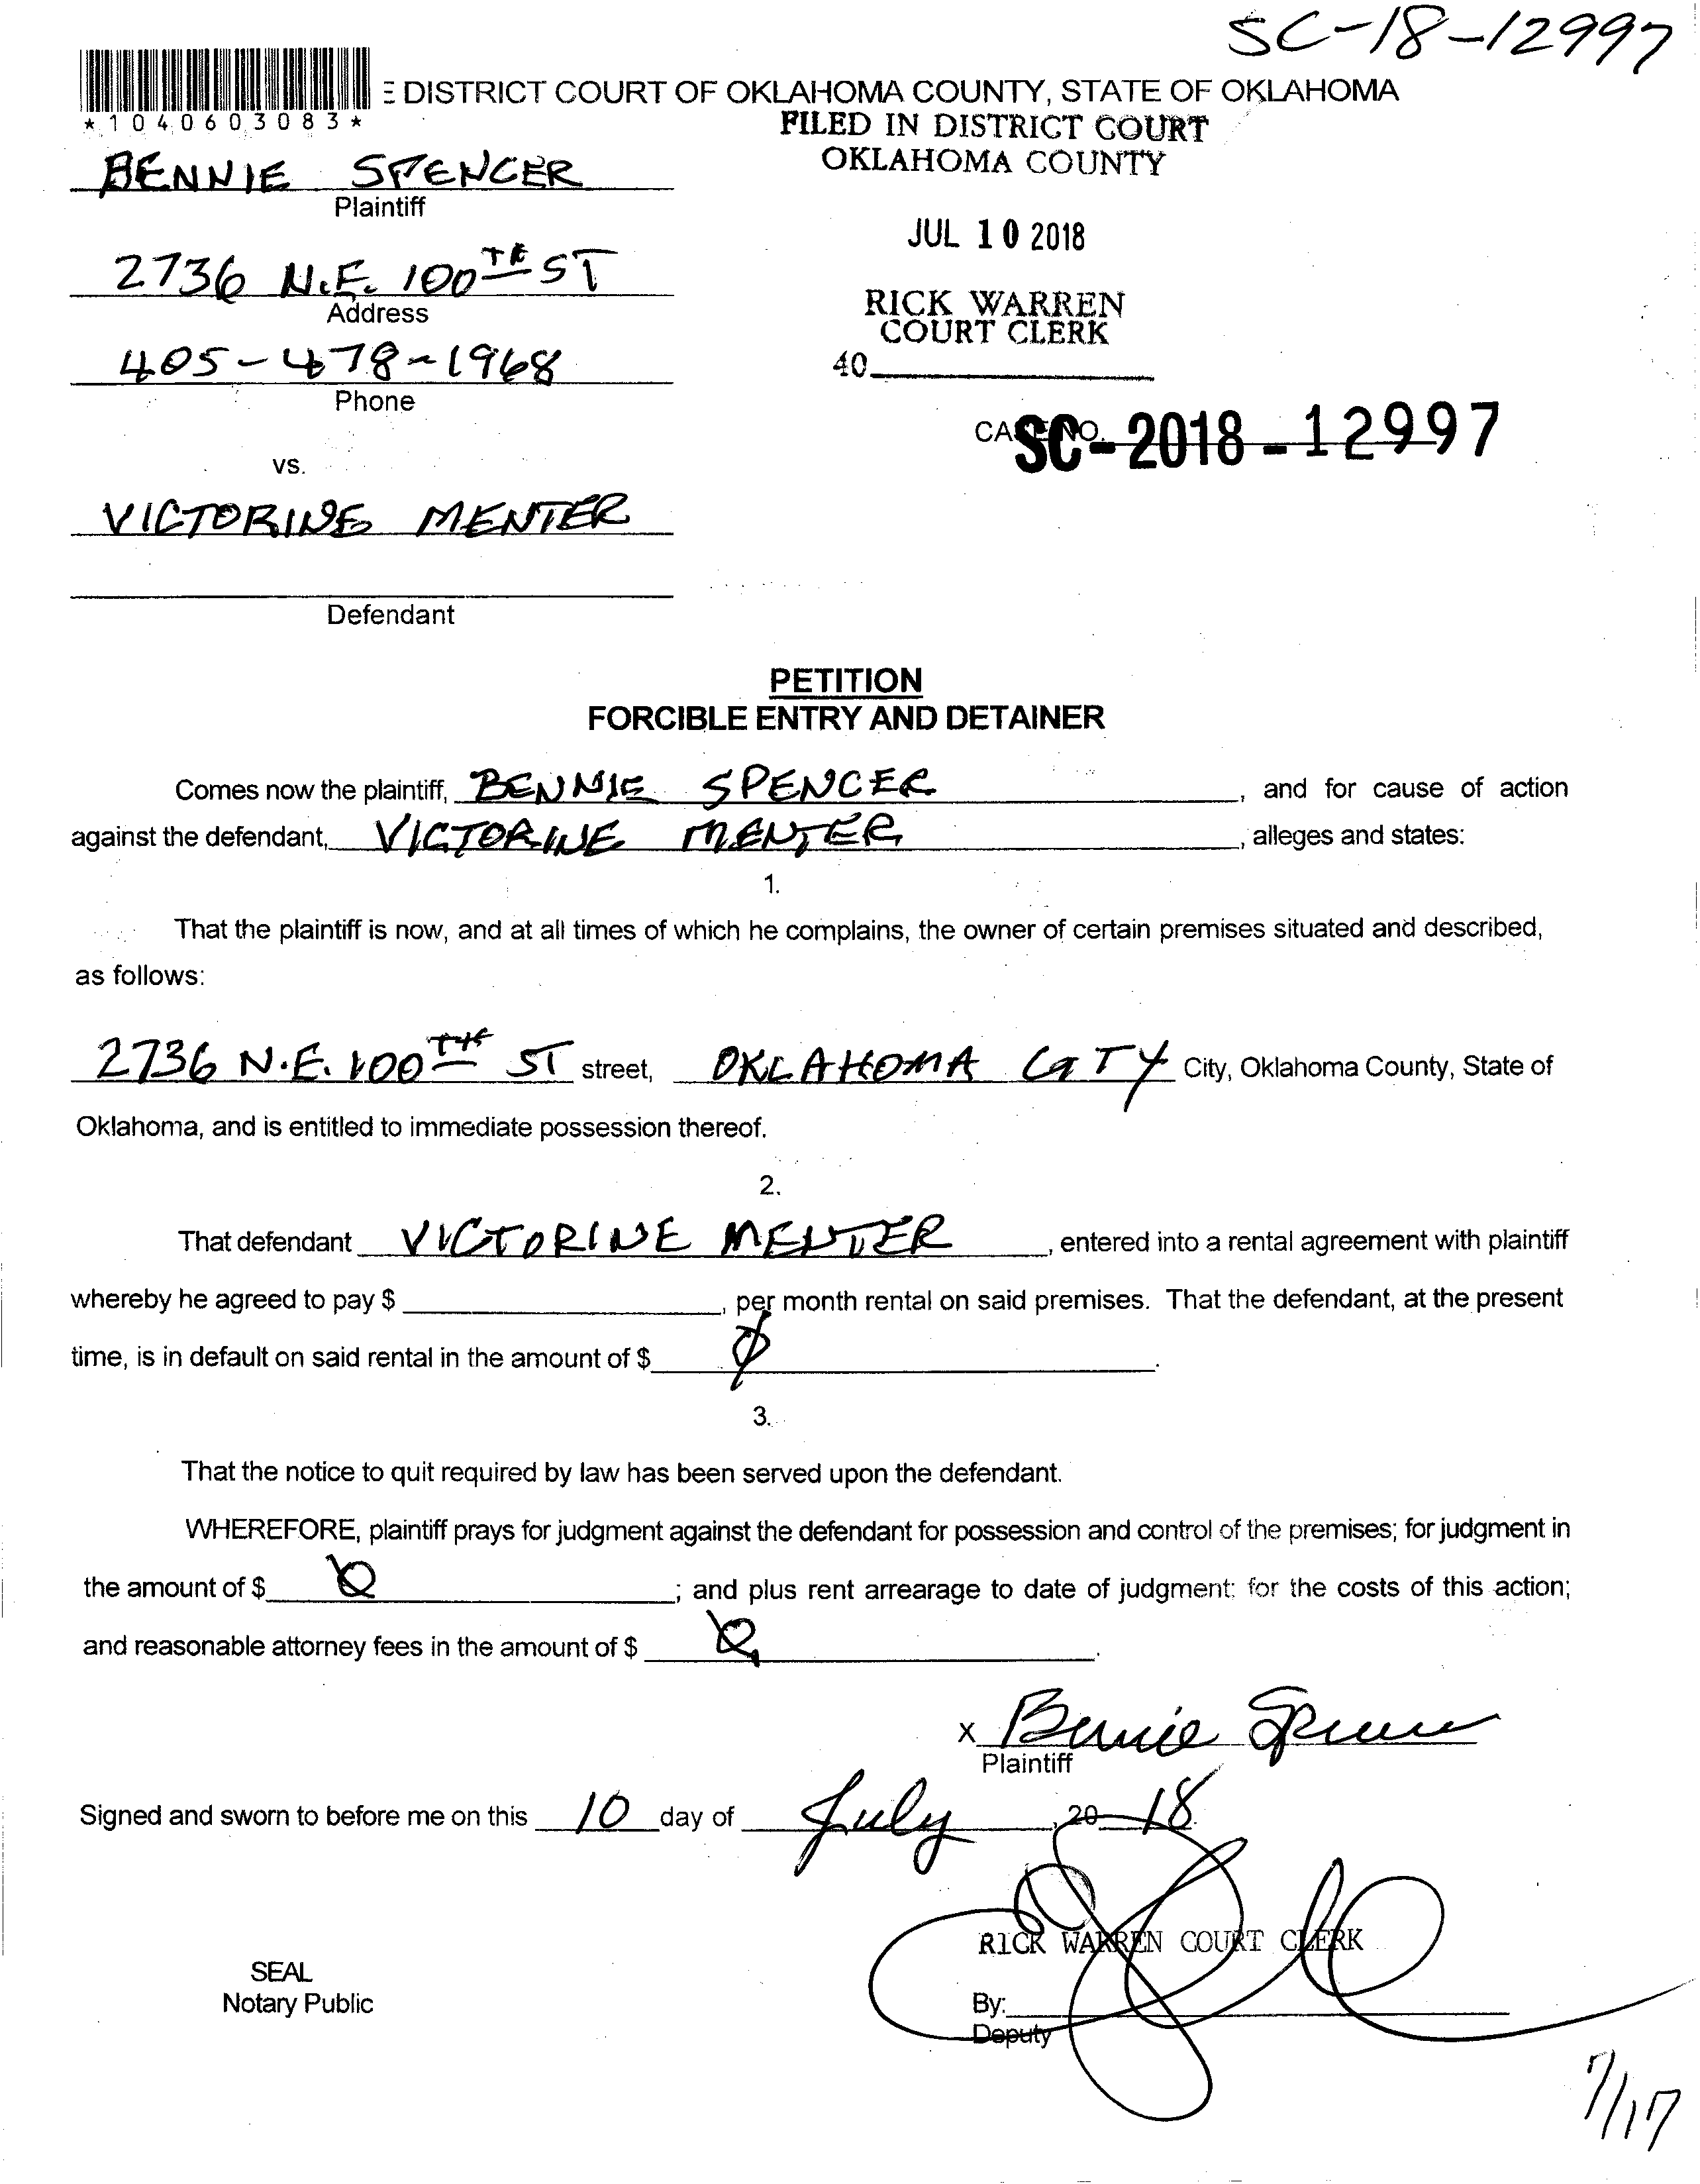 SC-18-12997
E DISTRICT COURT OF OKLAHOMA COUNTY, STATE OF OKLAHOMA
*1040603083*
FILED IN DISTRICT COURT
OKLAHOMA COUNTY
BENNIE SPENCER
Plaintiff
JUL 10 2018
2736 N.E. 100TH ST
Address
RICK WARREN
COURT CLERK
405-478-1968
40
Phone
CASE NO. SC-2018-12997
vs.
VICTORINE MENTER
Defendant
PETITION
FORCIBLE ENTRY AND DETAINER
Comes now the plaintiff, BENNIE SPENCER, and for cause of action
against the defendant, VICTORINE MENTER, alleges and states:
1.
That the plaintiff is now, and at all times of which he complains, the owner of certain premises situated and described,
as follows:
2736 N.E. 100TH ST street, OKLAHOMA CITY City, Oklahoma County, State of
Oklahoma, and is entitled to immediate possession thereof.
2.
That defendant VICTORINE MENTER, entered into a rental agreement with plaintiff
whereby he agreed to pay $ , per month rental on said premises. That the defendant, at the present
time, is in default on said rental in the amount of $ 0.
3.
That the notice to quit required by law has been served upon the defendant.
WHEREFORE, plaintiff prays for judgment against the defendant for possession and control of the premises; for judgment in
the amount of $ 0; and plus rent arrearage to date of judgment; for the costs of this action;
and reasonable attorney fees in the amount of $ 0.
x Bennie Spencer
Plaintiff
Signed and sworn to before me on this 10 day of July, 20 18.
RICK WARREN COURT CLERK
SEAL
Notary Public
By:
Deputy
7/17